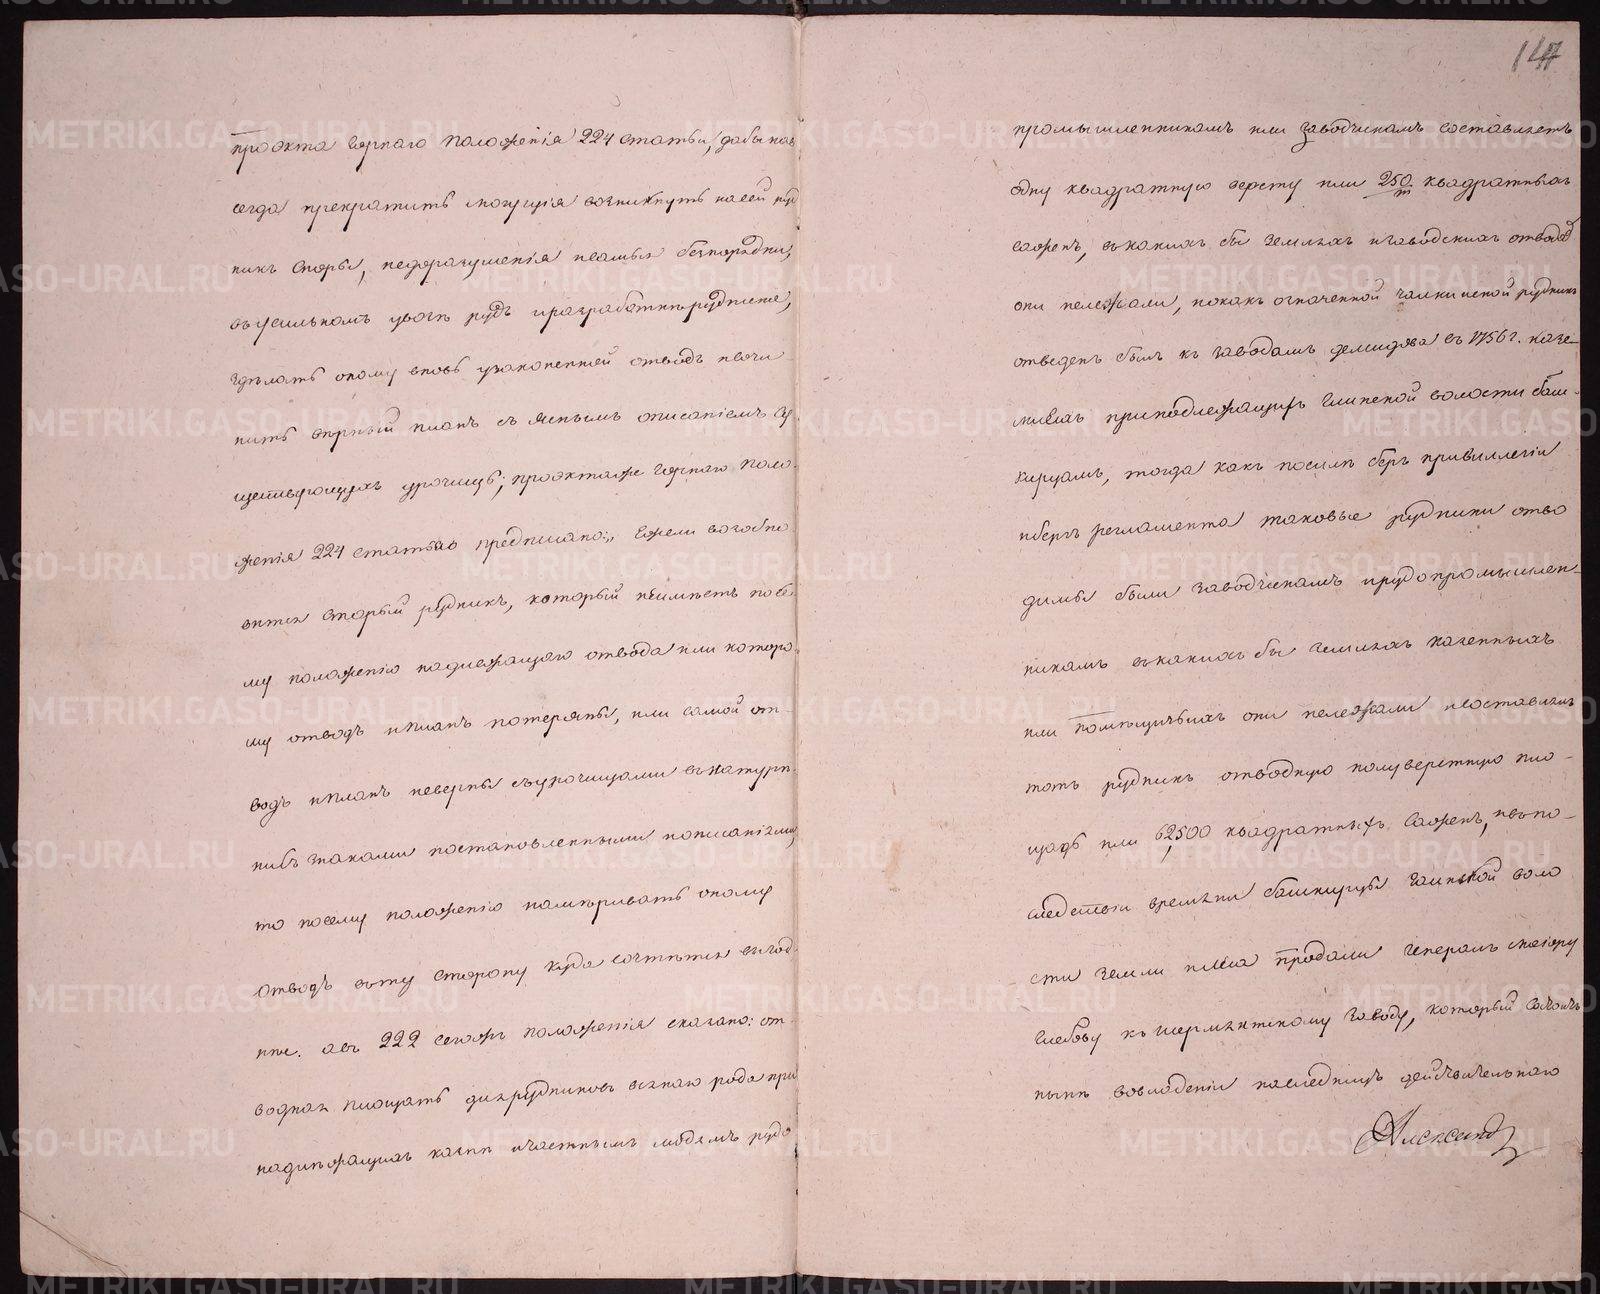 147
проэкта горнаго положенія 224 статьи, дабы нав
сегда прекратить могущія возникнуть насей руд
никъ споры, недоразуменія исамыя безпорядки,
въусильномъ увозе рудъ иразработке рудника,
зделать оному вновь узаконенной отводъ иечи
нить верный планъ съ яснымъ описаніемъ су
ществующихъ урочищъ; проэктаже горнаго поло
женія 224 статьею предписано: „ Ежели возобно
вится старый рудникъ, который неимеетъ посе
му положенію надлежащаго отвода или которо
му отводъ ипланъ потеряны, или самой от-
водъ ипланъ неверны съурочищами внатуре
нибъ знаками постановленными пописаніямъ,
то посему положенію намеривать оному
отводъ вту сторону куда сочтется выгод-
нее. авъ 222 сегожъ положенія сказано: от-
водная площадь длярудниковъ всякаго рода при
надлежащихъ казне ичастнымъ людямъ рудо
промышленникамъ или заводчикамъ составляетъ
одну квадратную версту или 250/т квадратныхъ
саженъ, вкакихъ бы земляхъ изаводскихъ отводах
они нележали, нокакъ означенной рудникъ
отведенъ былъ къ заводамъ демидова въ 1756 г. назе-
мляхъ принадлежащихъ гаинской волости баш-
кирцамъ, тогда какъ посиле бергъ привиллегіи
ибергъ регламента таковые рудники отво
димы были заводчикамъ ирудопромышлен-
никамъ вкакихъ бы земляхъ казенныхъ
или помещичьихъ они нележали исоставлялъ
тотъ рудникъ отводную полуверстную пло-
щадь или 62,500 квадратныхъ саженъ, ивпо-
следствіи времяни башкирцы гаинской воло
сти земли илеса продали генералъ маіору
глебову къ шермяитскому заводу, который состоитъ
ныне вовладеніи наследницъ действительнаго
Александ